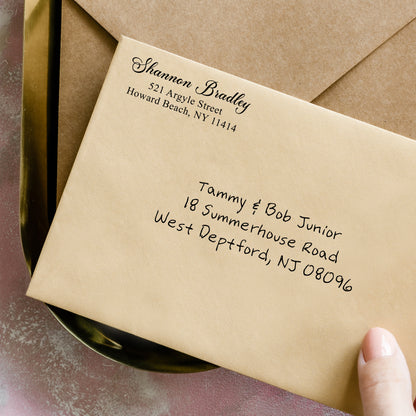 Shannon Bradley
521 Argyle Street
Howard Beach, NY 11414
Tammy & Bob Junior
18 Summerhouse Road
West Deptford, NJ 08096